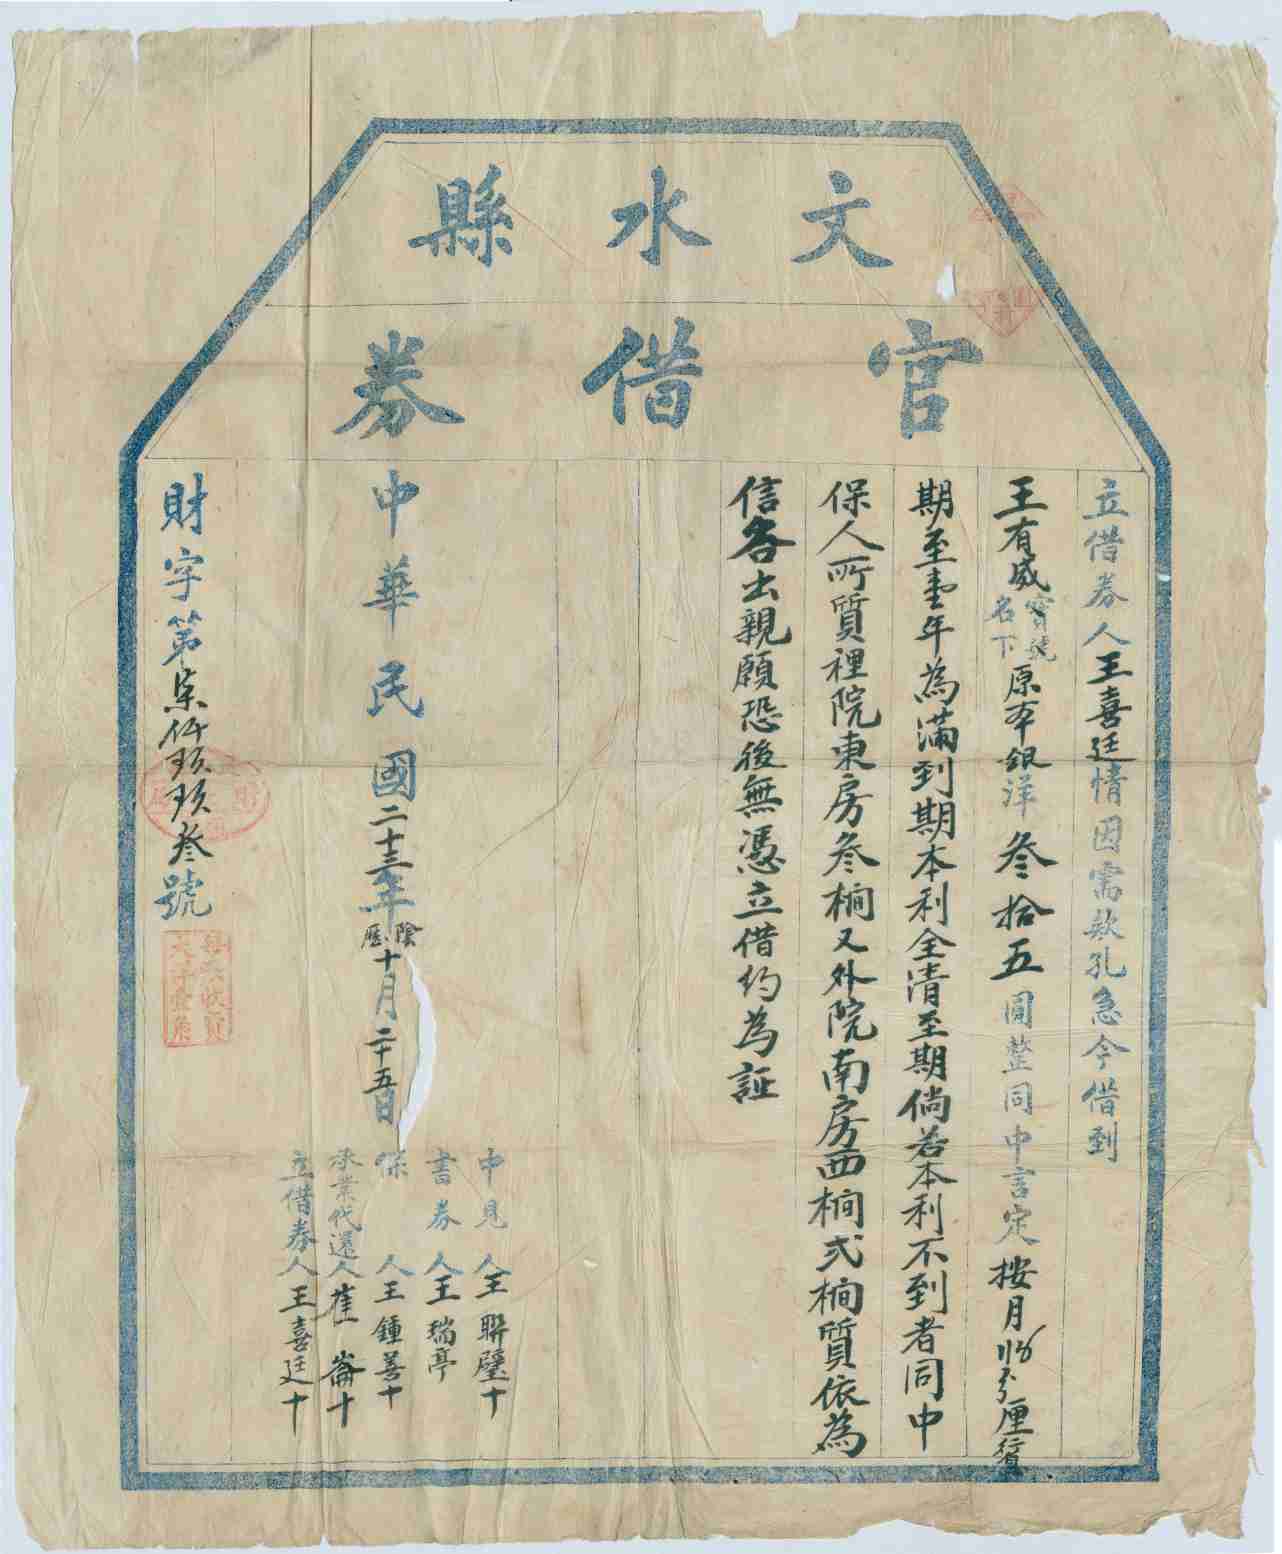 文水縣
官借券
立借券人王喜廷情因需款孔急今借到
王有威寶號名下原本銀洋叁拾五圓整同中言定按月分厘行息
期至壹年為滿到期本利全清至期倘若本利不到者同中
保人所質裡院東房叁櫚又外院南房西櫚弍櫚質依為
信各出親願恐後無憑立借約為証
中見人王聯璧十
書券人王瑞亭
保人王鍾善十
承業代還人崔崙十
立借券人王喜廷十
中華民國二十三年陰曆十月二十五日
財字第柒仟玖玖叁號